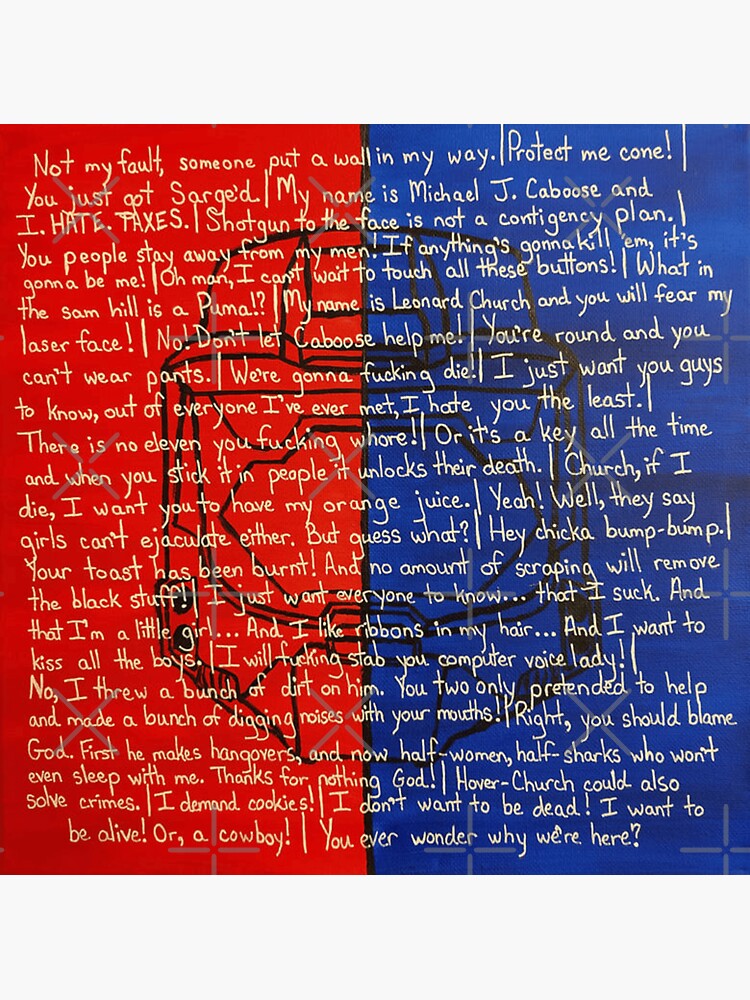 Not my fault, someone put a wall in my way. | Protect me cone! |
You just got Sarge'd. | My name is Michael J. Caboose and
I. HATE. TAXES. | Shotgun to the face is not a contigency plan. |
You people stay away from my men! If anything's gonna kill 'em, it's
gonna be me! | Oh man, I can't wait to touch all these buttons! | What in
the sam hill is a Puma!? | My name is Leonard Church and you will fear my
laser face! | No! Don't let Caboose help me! | You're round and you
can't wear pants. | We're gonna fucking die! | I just want you guys
to know, out of everyone I've ever met, I hate you the least. |
There is no eleven you fucking whore! | Or it's a key all the time
and when you stick it in people it unlocks their death. | Church, if I
die, I want you to have my orange juice. | Yeah! Well, they say
girls can't ejaculate either. But guess what? | Hey chicka bump-bump. |
Your toast has been burnt! And no amount of scraping will remove
the black stuff! | I just want everyone to know... that I suck. And
that I'm a little girl... And I like ribbons in my hair... And I want to
kiss all the boys. | I will fucking stab you computer voice lady! |
No, I threw a bunch of dirt on him. You two only pretended to help
and made a bunch of digging noises with your mouths! | Right, you should blame
God. First he makes hangovers, and now half-women, half-sharks who won't
even sleep with me. Thanks for nothing God! | Hover-Church could also
solve crimes. | I demand cookies! | I don't want to be dead! I want to
be alive! Or, a cowboy! | You ever wonder why we're here?